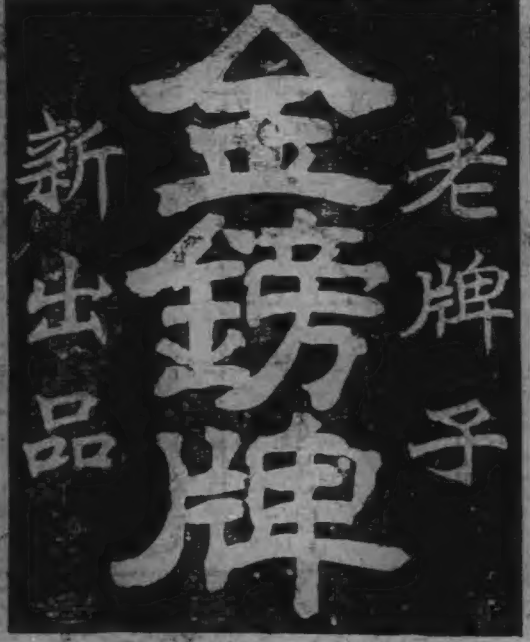 老牌子
金鎊牌
新出品